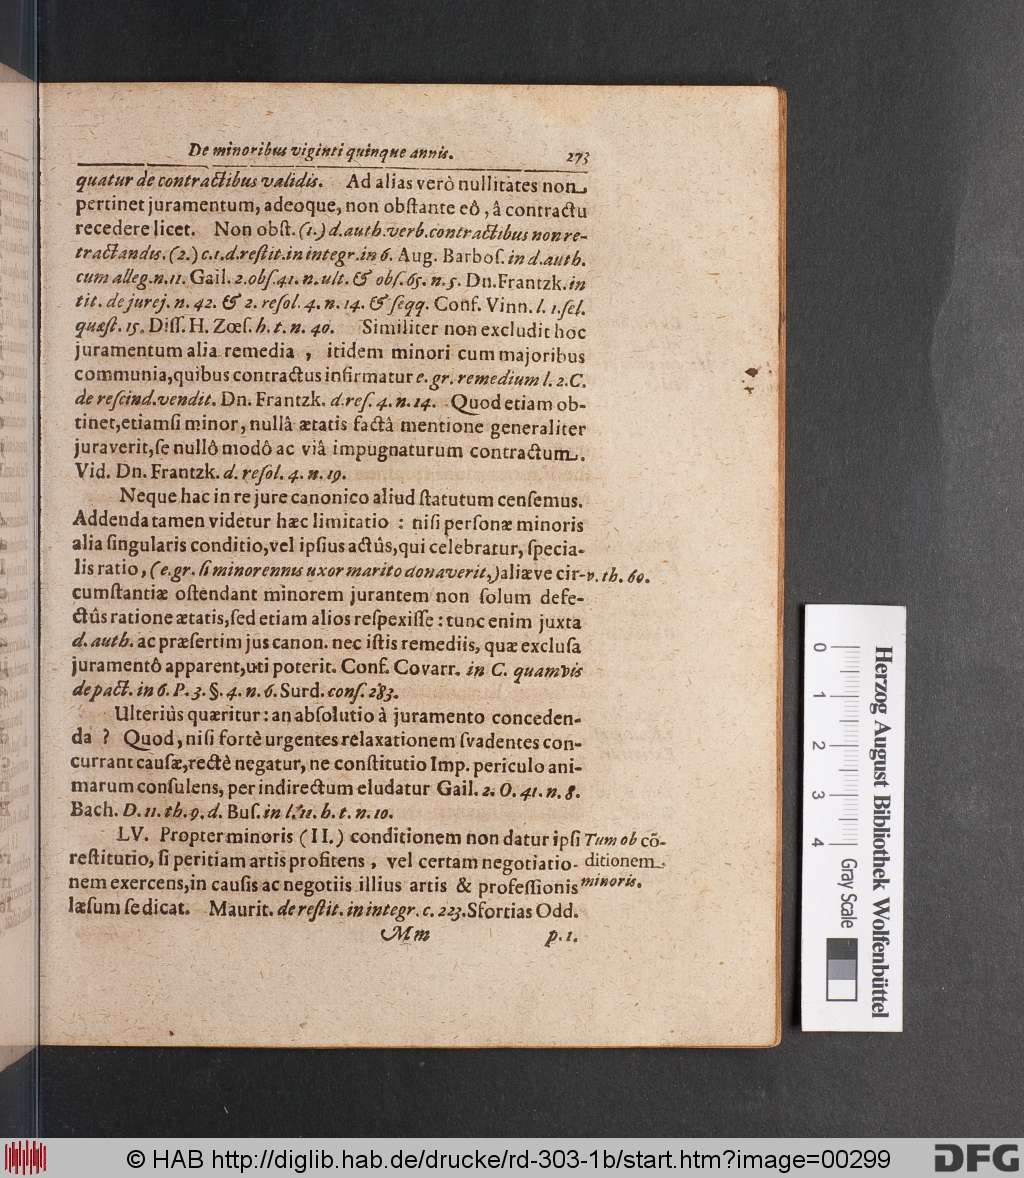 De minoribus viginti quinque annis. 273
quatur de contractibus validis. Ad alias verò nullitates non
pertinet juramentum, adeoque, non obſtante eô, â contractu
recedere licet. Non obſt. (1.) d. auth. verb. contractibus non re-
tractandis. (2.) c. 1. d. reſtit. in integr. in 6. Aug. Barboſ. in d. auth.
cum alleg. n. 11. Gail. 2. obſ. 41. n. ult. & obſ. 65. n. 5. Dn. Frantzk. in
tit. de jurej. n. 42. & 2. reſol. 4. n. 14. & ſeqq. Conf. Vinn. l. 1. ſel.
quæſt. 15. Diſſ. H. Zœſ. h. t. n. 40. Similiter non excludit hoc
juramentum alia remedia, itidem minori cum majoribus
communia, quibus contractus infirmatur e. gr. remedium l. 2. C.
de reſcind. vendit. Dn. Frantzk. d. reſ. 4. n. 14. Quod etiam ob-
tinet, etiamſi minor, nullâ ætatis factâ mentione generaliter
juraverit, ſe nullô modô ac viâ impugnaturum contractum.
Vid. Dn. Frantzk. d. reſol. 4. n. 19.
Neque hac in re jure canonico aliud ſtatutum cenſemus.
Addenda tamen videtur hæc limitatio : niſi perſonæ minoris
alia ſingularis conditio, vel ipſius actûs, qui celebratur, ſpecia-
lis ratio, (e. gr. ſi minorennis uxor marito donaverit,) aliæve cir- v. th. 60.
cumſtantiæ oſtendant minorem jurantem non ſolum defe-
ctûs ratione ætatis, ſed etiam alios reſpexiſſe : tunc enim juxta
d. auth. ac præſertim jus canon. nec iſtis remediis, quæ excluſa
juramentô apparent, uti poterit. Conf. Covarr. in C. quamvis
de pact. in 6. P. 3. §. 4. n. 6. Surd. conſ. 283.
Ulteriùs quæritur : an abſolutio à juramento conceden-
da ? Quod, niſi fortè urgentes relaxationem ſvadentes con-
currant cauſæ, rectè negatur, ne conſtitutio Imp. periculo ani-
marum conſulens, per indirectum eludatur Gail. 2. O. 41. n. 8.
Bach. D. 11. th. 9. d. Buſ. in l. 11. h. t. n. 10.
LV. Propter minoris (II.) conditionem non datur ipſi Tum ob cõ-
reſtitutio, ſi peritiam artis profitens, vel certam negotiatio- ditionem
nem exercens, in cauſis ac negotiis illius artis & profeſſionis minoris.
læſum ſe dicat. Maurit. de reſtit. in integr. c. 223. Sfortias Odd.
Mm p. 1.
0 1 2 3 4
Gray Scale
Herzog August Bibliothek Wolfenbüttel
© HAB http://diglib.hab.de/drucke/rd-303-1b/start.htm?image=00299
DFG